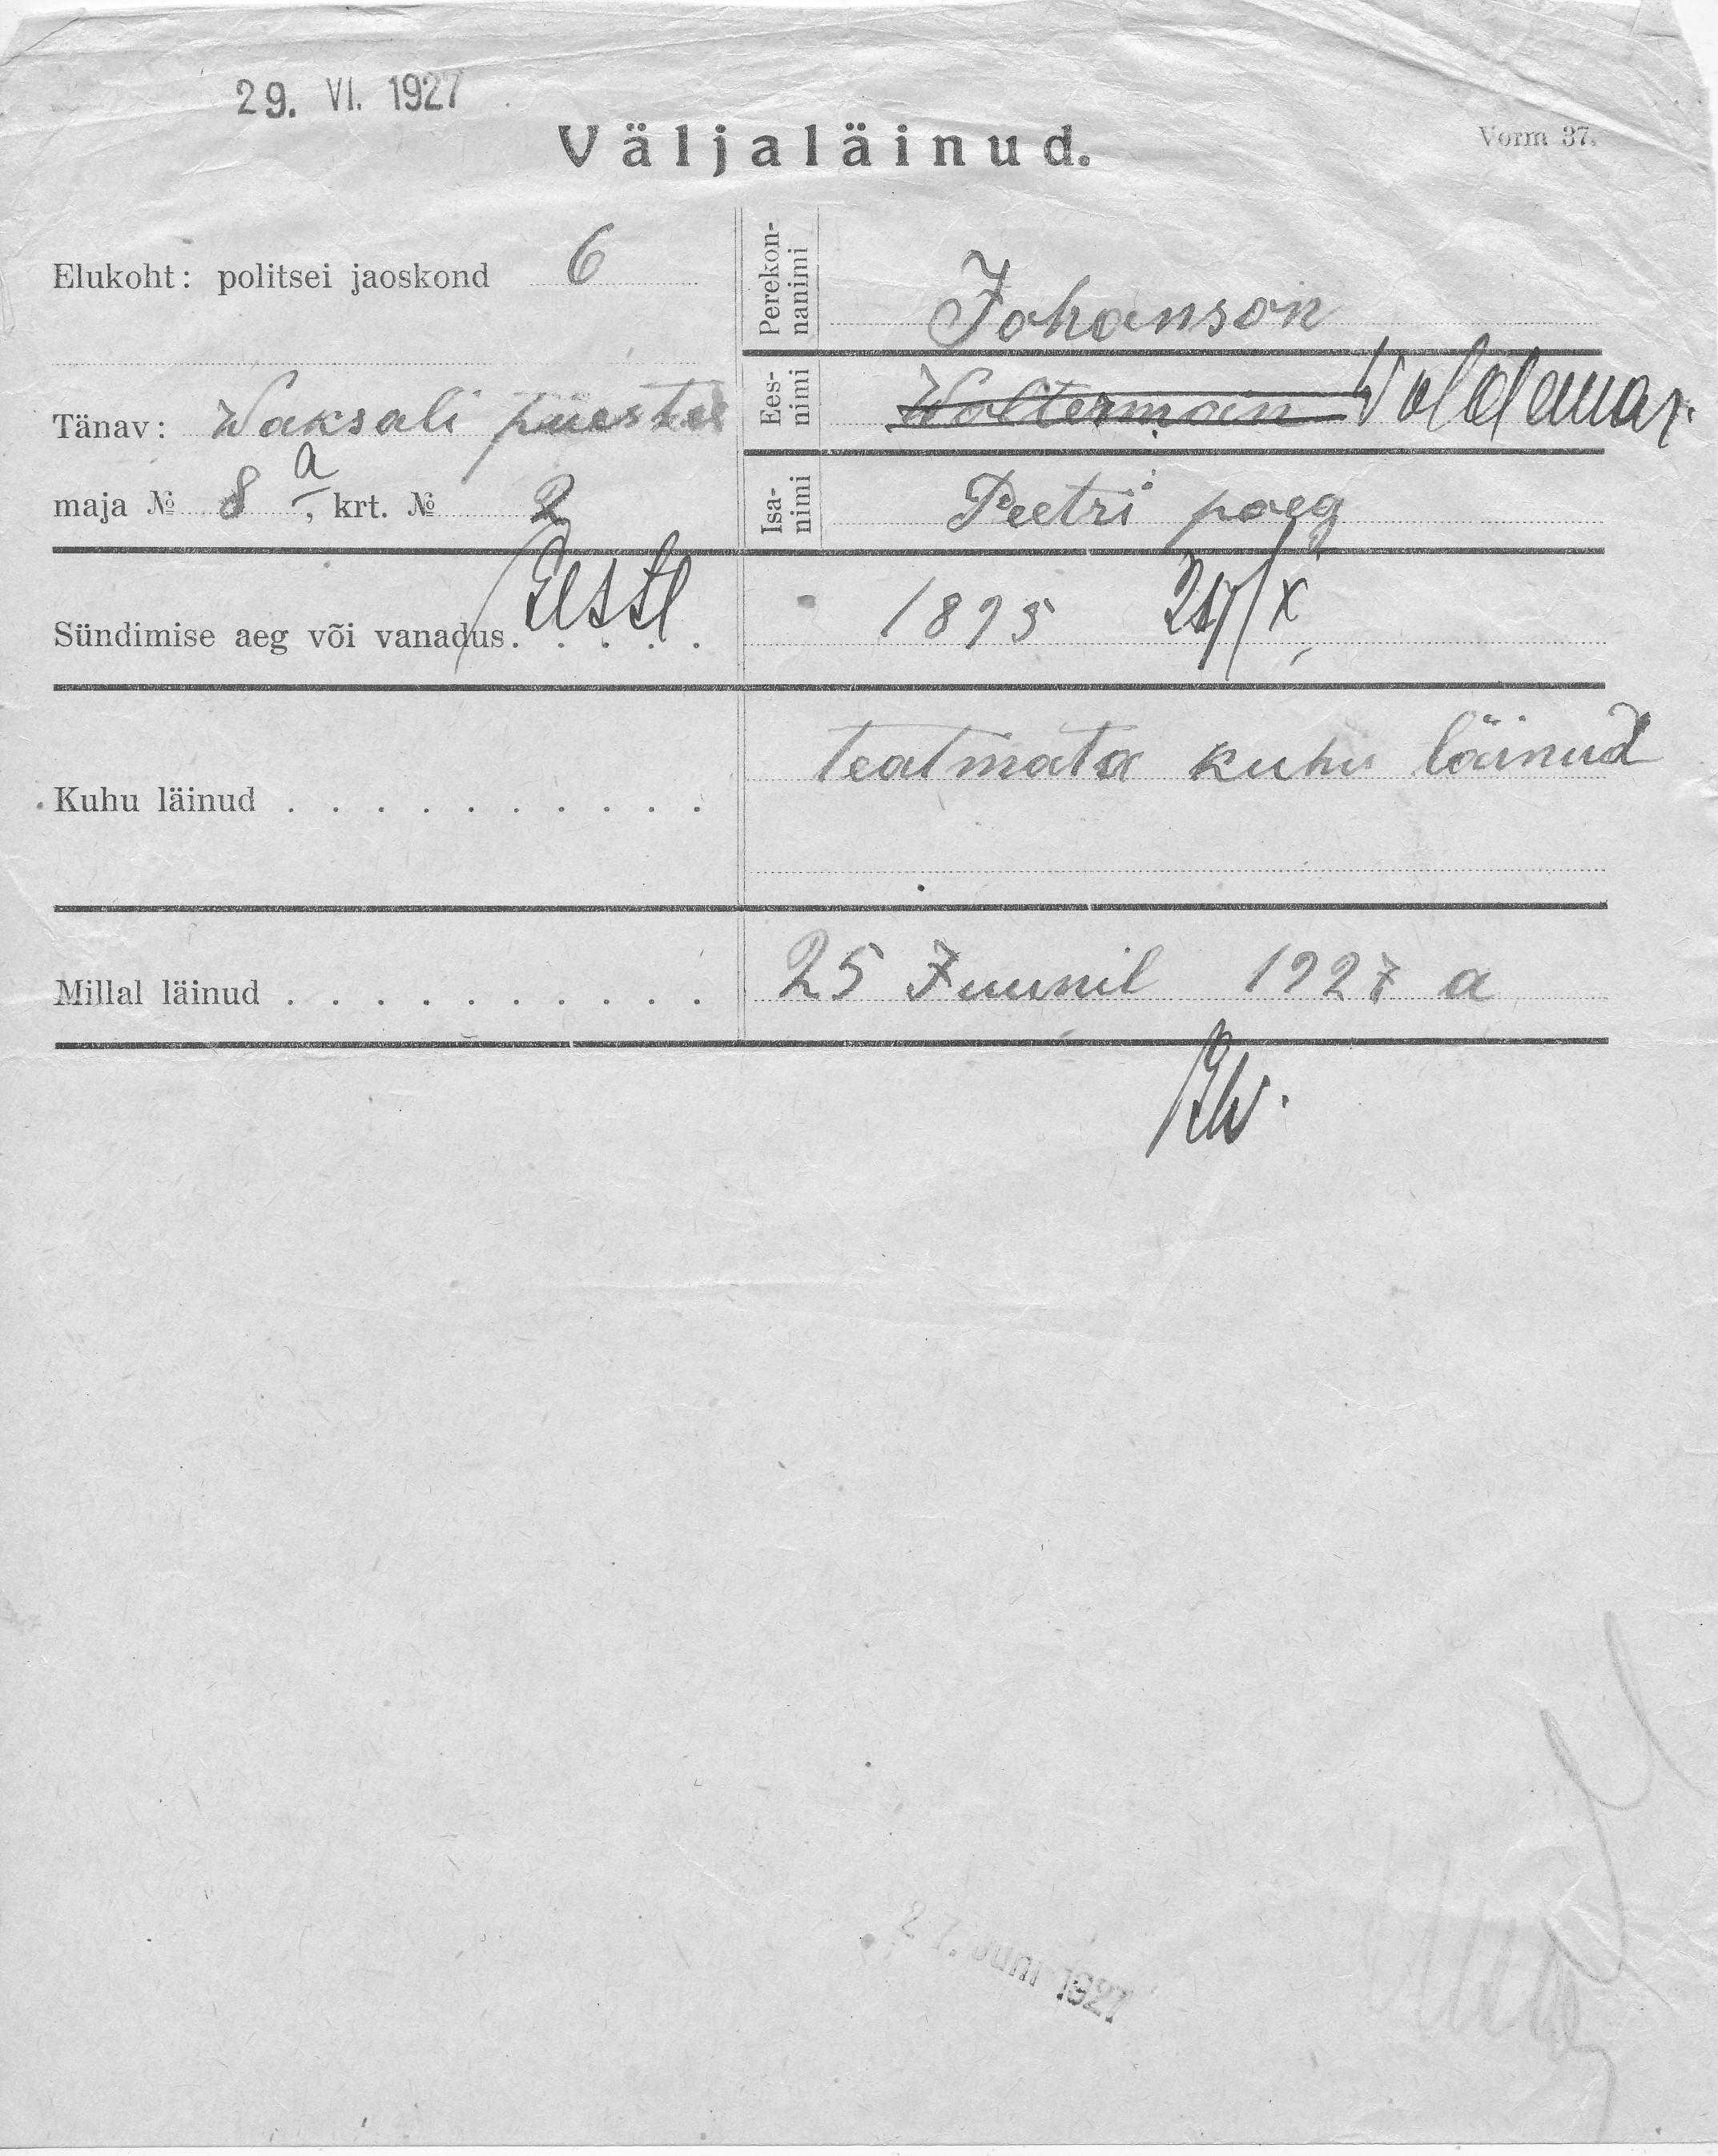 29. VI. 1927
Väljaläinud.
Vorm 37.
Elukoht: politsei jaoskond 6
Tänav: Waksali puiestee
maja № 8 a, krt. № 2
Perekon-
nanimi
Johanson
Ees-
nimi
Woltermain Woldemar.
Isa-
nimi
Peetri poeg
Eestl
Sündimise aeg või vanadus. . . . . .
1895
Kuhu läinud . . . . . . . . . .
teatmata kuhu läinud
Millal läinud . . . . . . . . . .
25 Juunil 1927 a
27. Juuni 1927